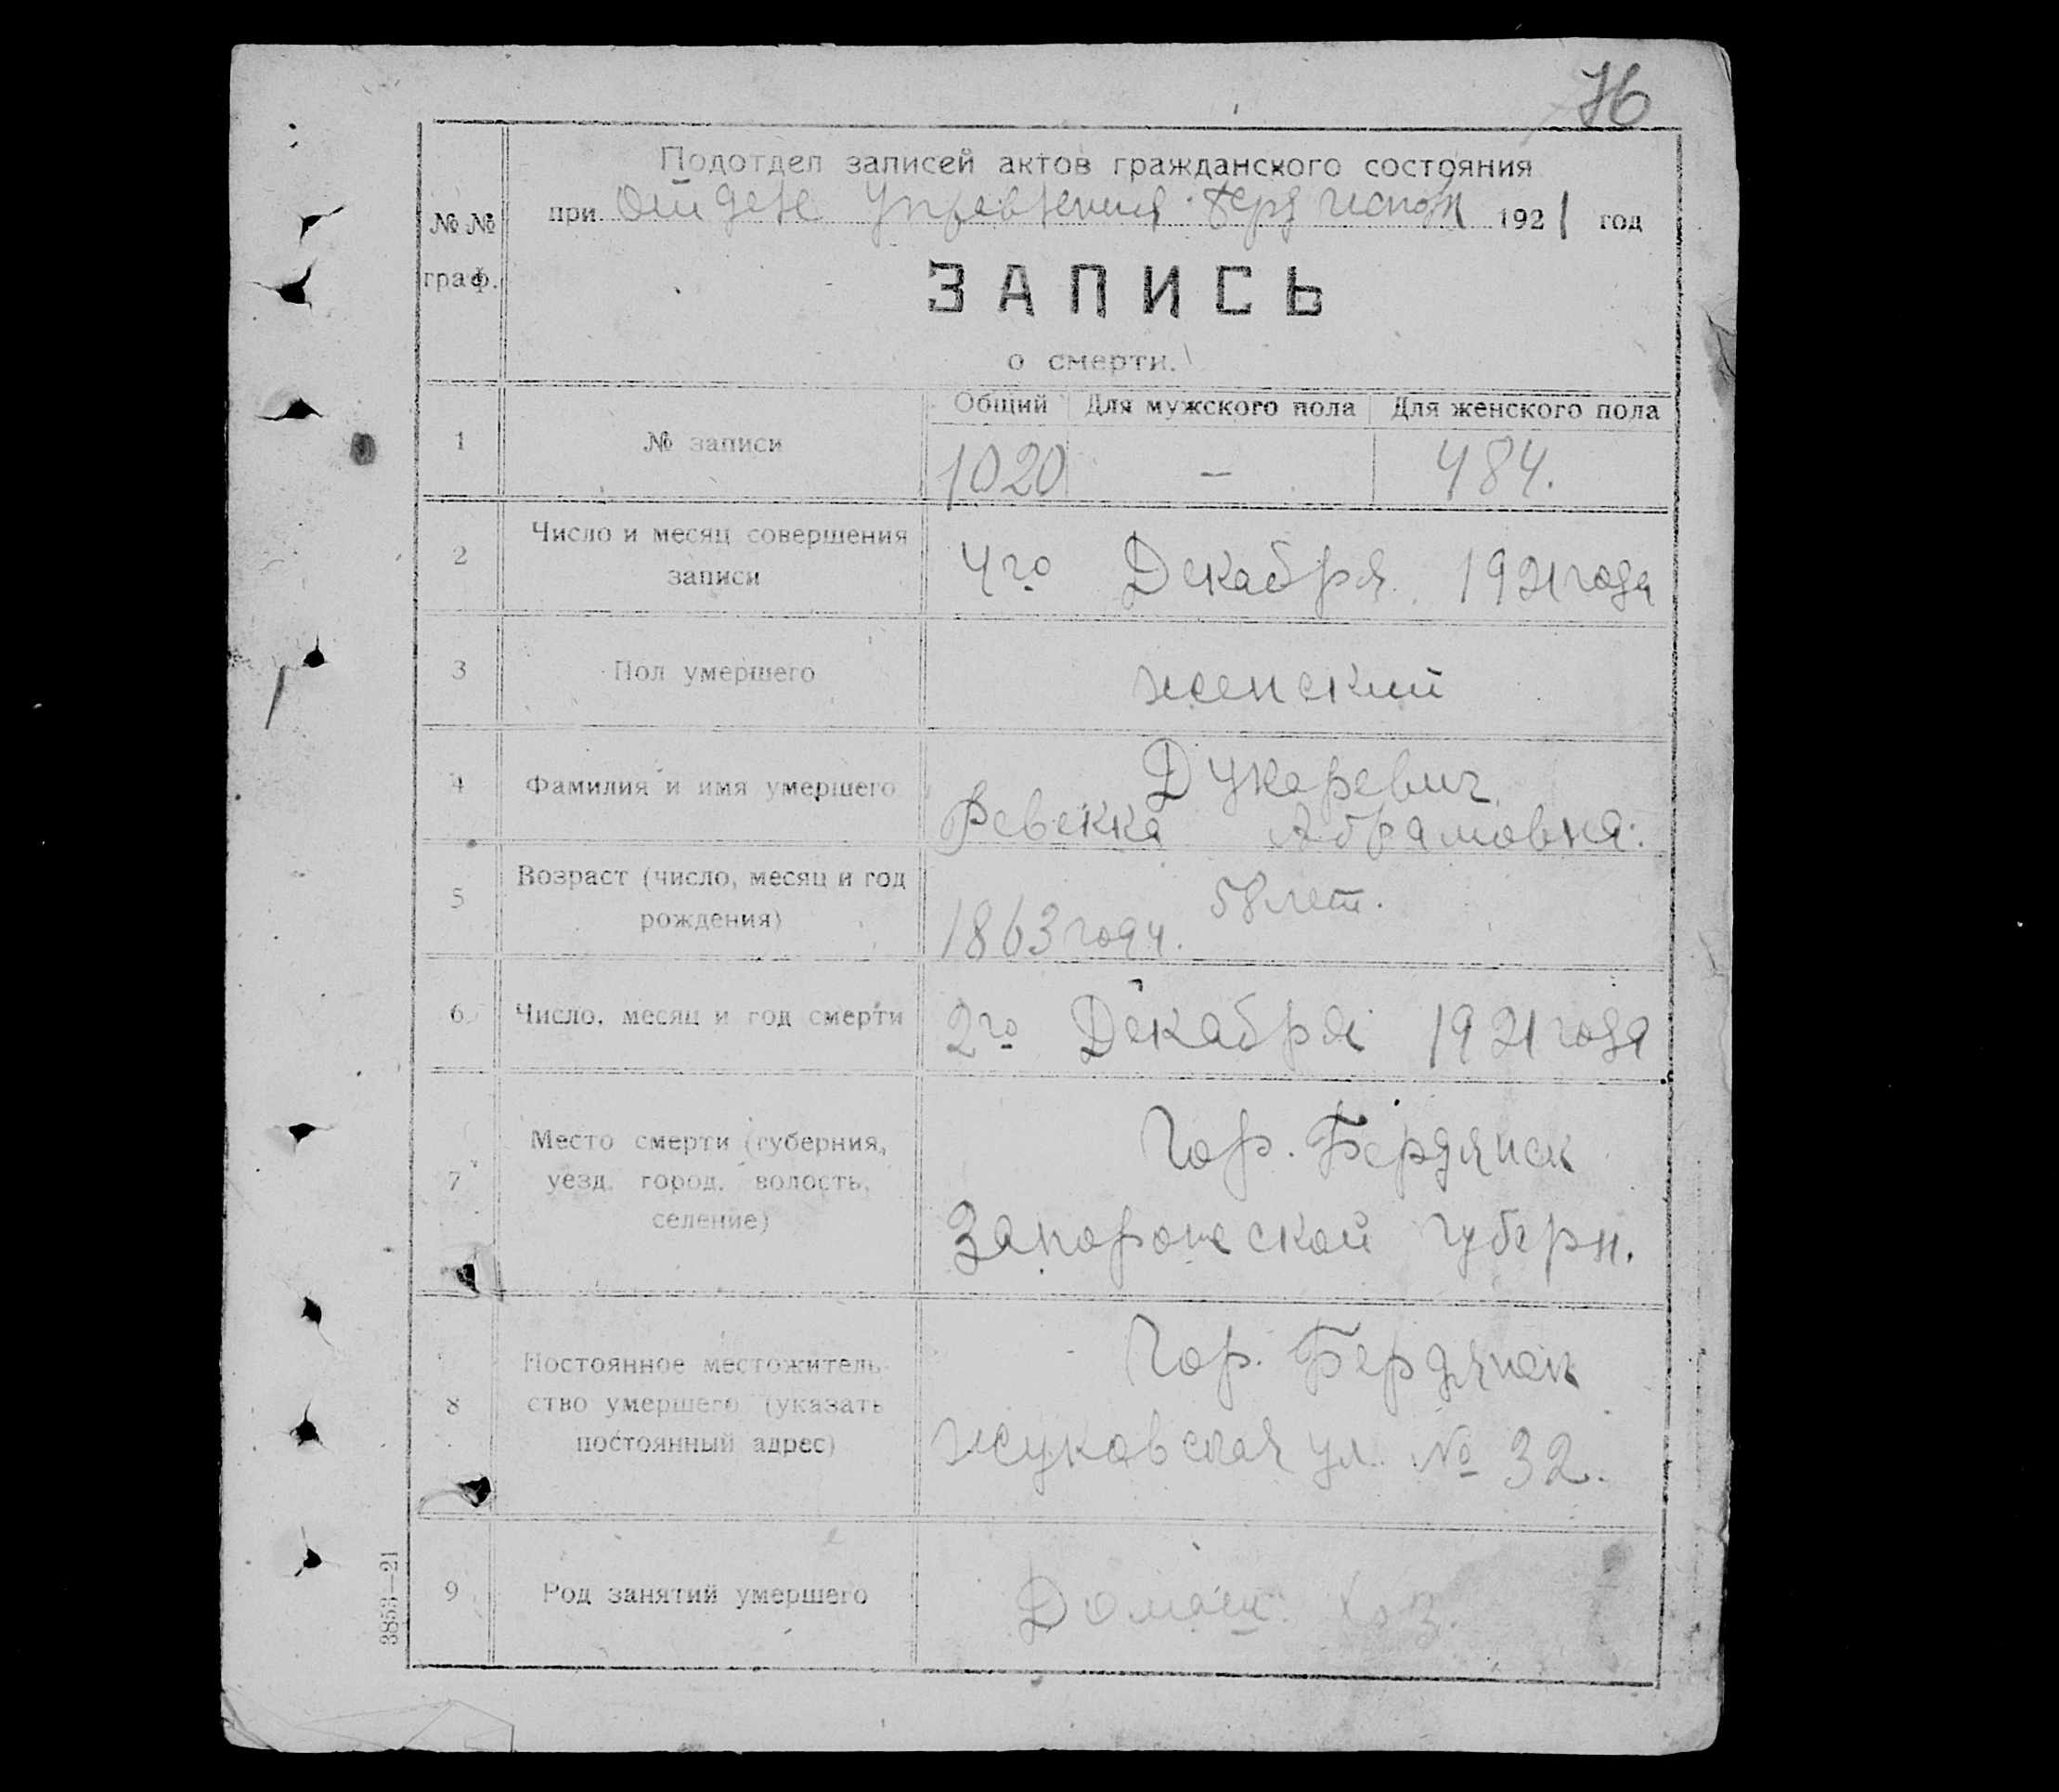 76
Подотдел записей актов гражданского состояния
№ № при Отделе Управления Берд 1921 год
граф.
ЗАПИСЬ
о смерти.
Общий Для мужского пола Для женского пола
1 № записи 1020 — 484.
2 Число и месяц совершения
записи 4го Декабря 1921 года
3 Пол умершего женский
4 Фамилия и имя умершего Дукаревич
Ревекка Абрамовна.
5 Возраст (число, месяц и год
рождения) 58 лет.
1863 году.
6 Число, месяц и год смерти 2го Декабря 1921 года
7 Место смерти (губерния,
уезд, город, волость,
селение) Гор. Бердянск
Запорожской губерн.
8 Постоянное местожитель-
ство умершего (указать
постоянный адрес) Гор. Бердянск
Жуковская ул. № 32.
9 Род занятий умершего Домаш. хоз.
3853—21